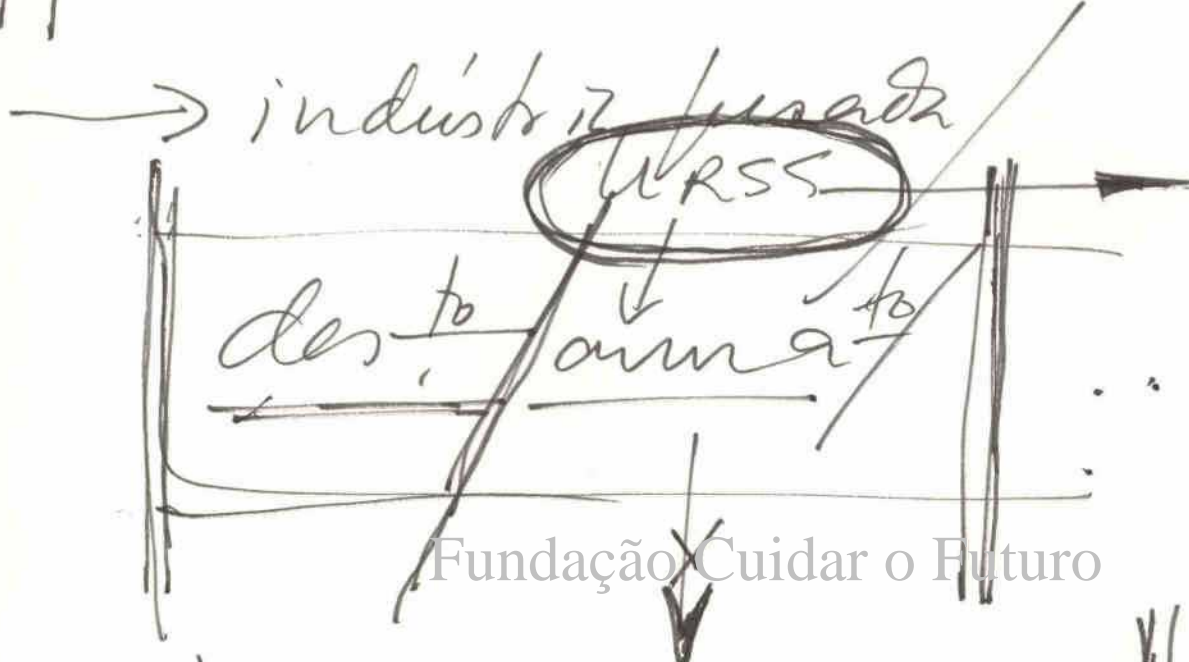 → indústria usada
URSS
des.to arma.to
Fundação Cuidar o Futuro